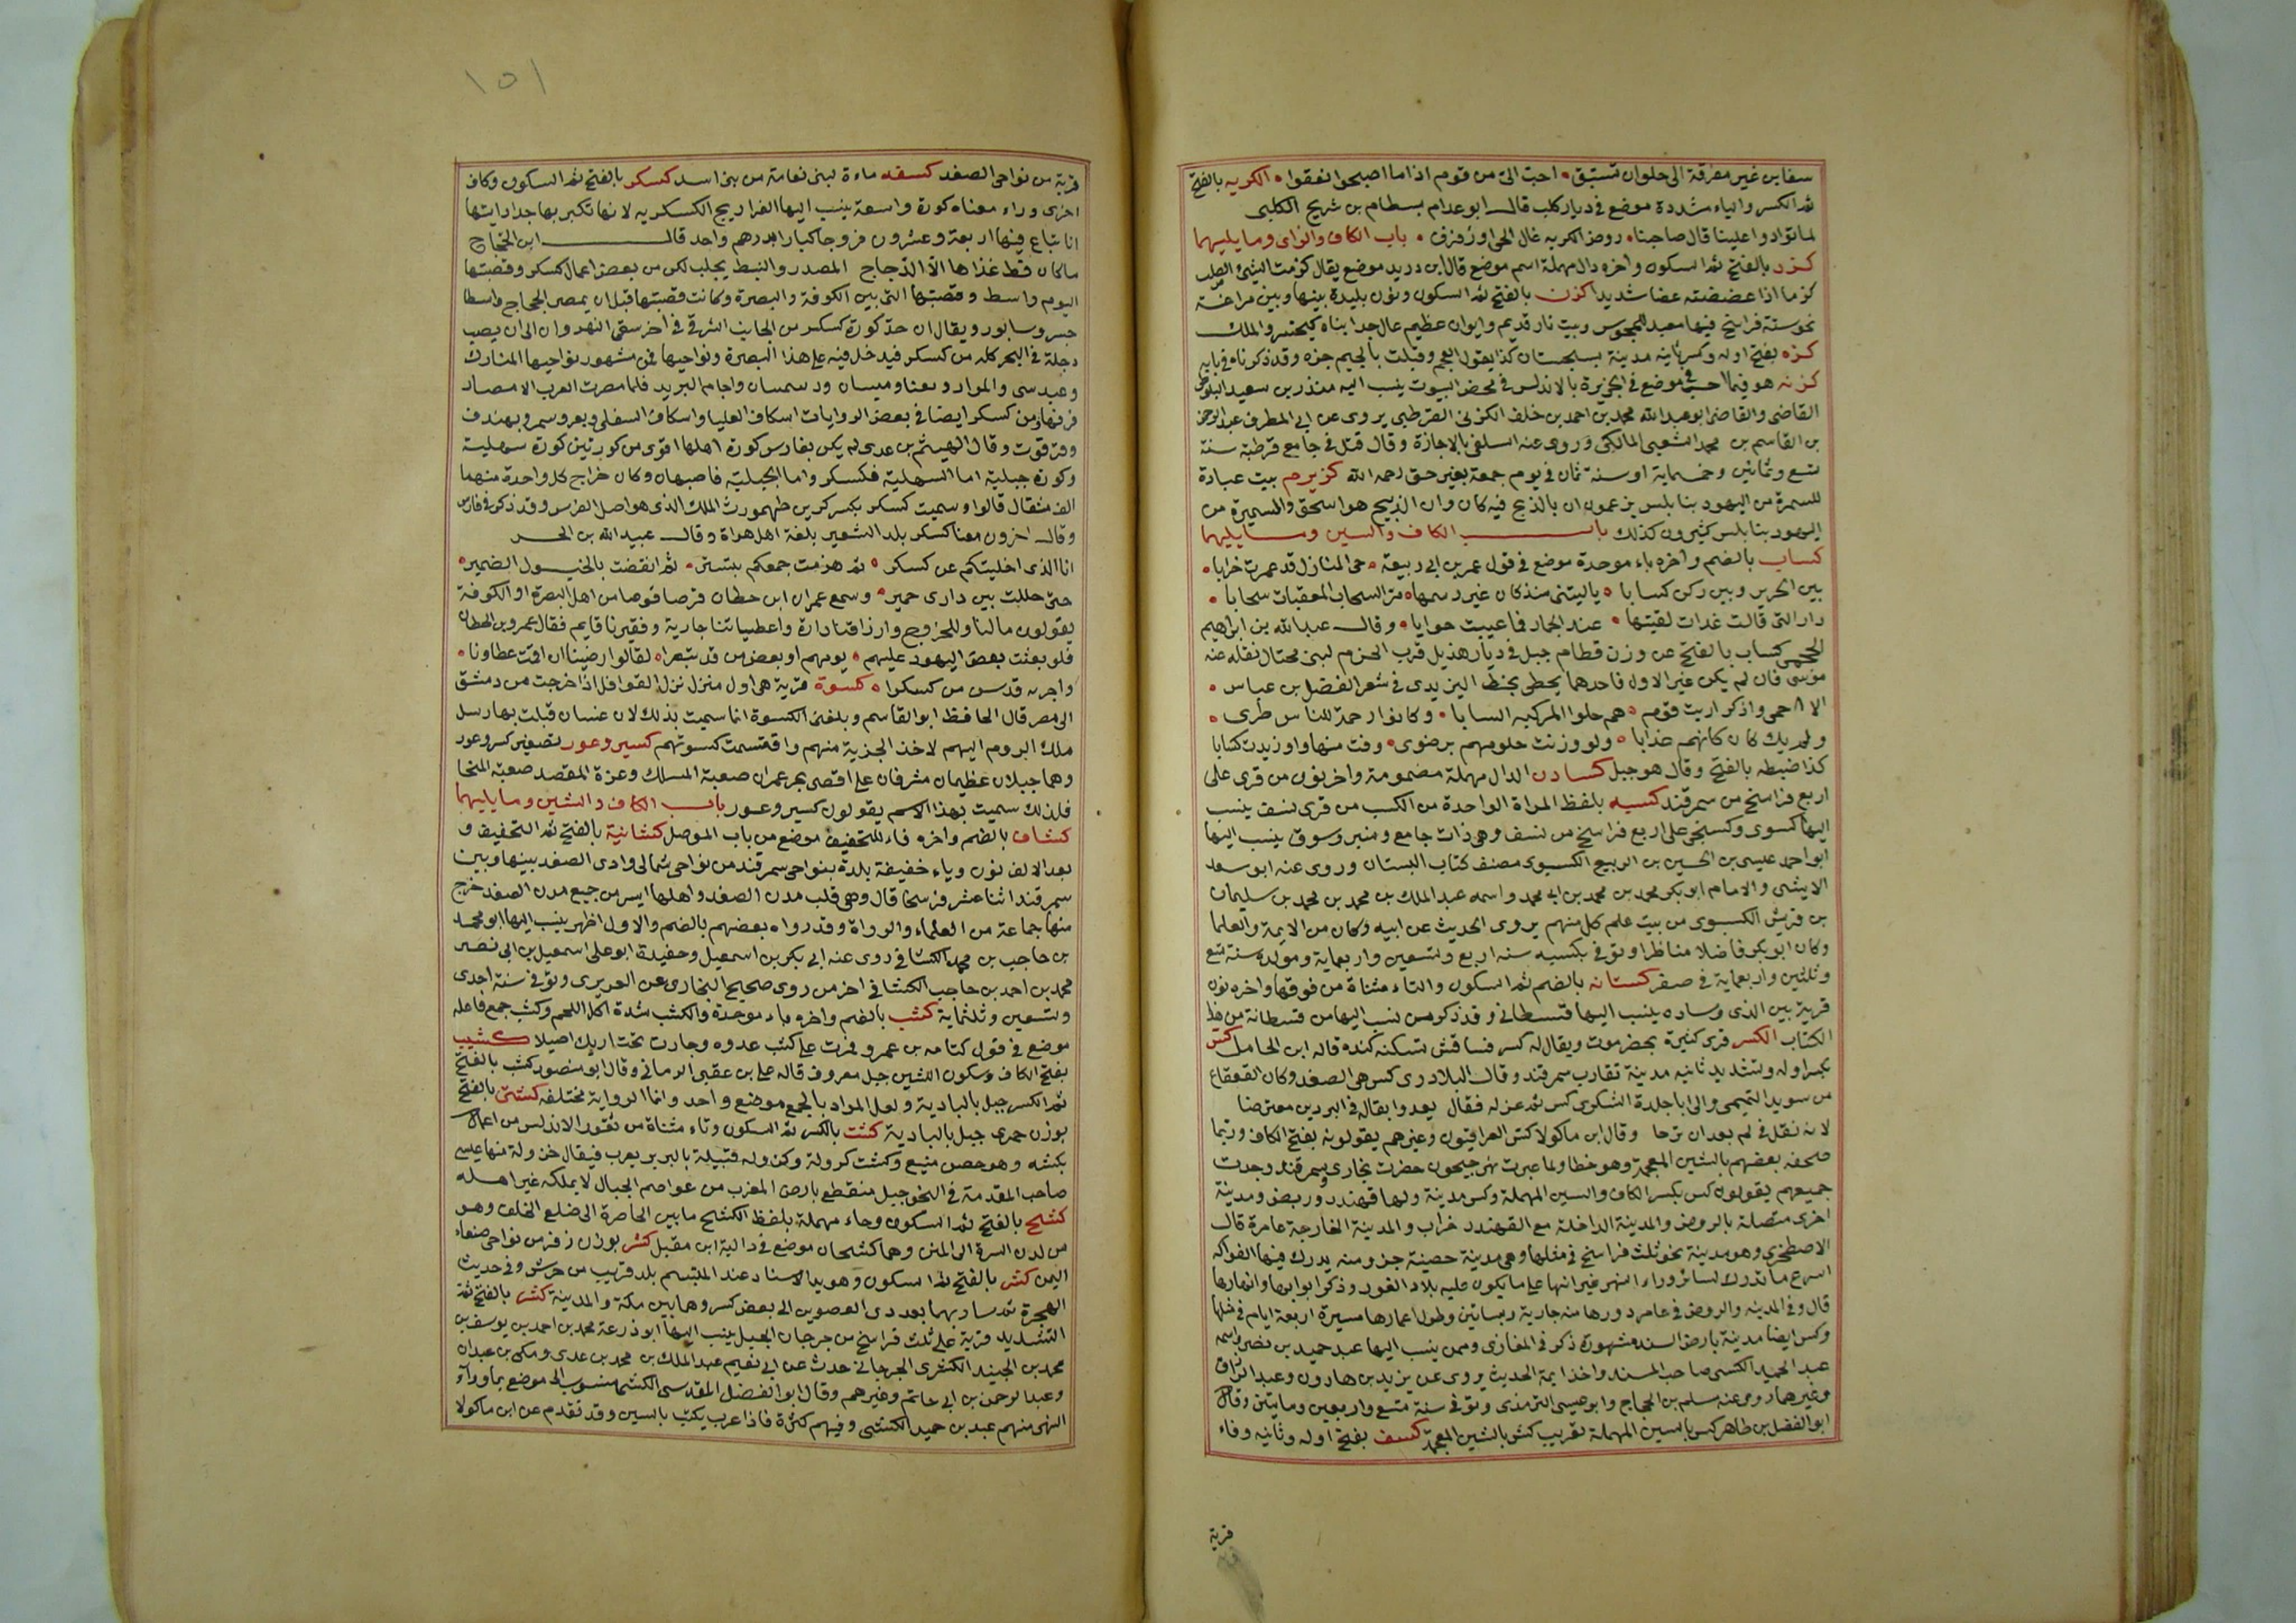 سفاين غير مفرقة الى حلوان تستبق احب الىّ من قوم اذا ما اصبحوا نعقوا الكريه بالفتح
ثم الكسر والياء مشددة موضع فى ديار كلب قال ابو عدام بسطام بن شريح الكلبى
لما توادوا علينا قال صاحبنا روض الكريه غال الحى اوزفزف باب الكاف والزاى وما يليهما
كزد بالفتح ثم السكون واخره دال مهملة اسم موضع قال ابن دريد موضع يقال كزمت الشئ الصلب
كزما اذا عضضته عضا شديدا كزن بالفتح ثم السكون ونون بليدة بينها وبين مراغة
نحو ستة فراسخ فيها معبد للمجوس وبيت نار قديم وايوان عظيم عال جدا بناه كيخسرو الملك
كزه بفتح اوله وكسر ثانيه مدينة بسجستان كذا يقول العجم وقبلت بالجيم جزه وقد ذكرناه فى بابه
كزنه هو فيما احسب موضع فى الجزيرة بالاندلس فى محض البيوت ينسب اليه منذر بن سعيد البلوطى
القاضى والقاضى ابو عبد الله محمد بن احمد بن خلف الكزنى القرطبى يروى عن ابى المطرف عبد الرحمن
بن القاسم بن محمد الشعبى المالكى وروى عنه السلفى بالاجازة وقال قتل فى جامع قرطبة سنة
تسع وثمانين وخمماية او سنة ثمان فى يوم جمعة بغير حق رحمه الله كزيرم بيت عبادة
للسمرة من اليهود بنابلس يزعمون ان بالذبح فيه كان وان الذبيح هو اسحق والسميرة من
اليهود بنابلس كثيرون كذلك باب الكاف والسين وما يليهما
كساب بالضم واخره باء موحدة موضع فى قول عمر بن ابى ربيعة حى المنازل قد عمرت خرابا
بين الجرير وبين ركن كسابا ياليتنى منذكان غير رسمها مرّ السحاب المعقبات سحابا
دار التى قالت غدات لقيتها عند الجمار فما عييت جوابا وقال عبد الله بن ابراهيم
الجمحى كساب بالفتح عن وزن قطام جبل فى ديار هذيل قرب الحزم لبنى محتال نقله عنه
موسى فان لم يكن غير الاول فاحدهما يحطى بخط اليزيدى فى شعر الفضل بن عباس
الا احمى واذكر اربت قوم هم حلوا المركبه السابا وكانوا رحمة للناس طرى
ولم يك كان كانهم خدابا ولو وزنت حلومهم برضوى وفت منها واو زيدت كسابا
كذا ضبطه بالفتح وقال هو جبل كسادن الدال مهملة مضمومة واخر نون من قرى على
اربع فراسخ من سمرقند كسبه بلفظ المراة الواحدة من الكسب من قرى نسف ينسب
اليها كسبوى وكسبجى على اربع فراسخ من نسف وهى ذات جامع ومنبر وسوق ينسب اليها
ابو احمد عيسى بن الحسين بن الربيع الكسبوى مصنف كتاب البستان وروى عنه ابو سعد
الايشى والامام ابو بكر محمد بن محمد بن ابى محمد واسمه عبد الملك بن محمد بن محمد بن سليمان
بن قريش الكسبوى من بيت علم كل منهم يروى الحديث عن ابيه وكان من الايمة والعلما
وكان ابو بكر فاضلا مناظرا وتوفى بكسبه سنه اربع وتسعين واربعماية ومولده سنة تسع
وثلثين واربعماية فى صفر كستانه بالضم ثم السكون والتاء مثناة من فوقها واخره نون
قرية بين الذى وساده ينسب اليها قسطانى وقد ذكر من نسب اليها من قسطانة من هذا
الكتاب الكسر قرى كثيرة بحضرموت ويقال له كسر قساقش تسكنه كنده قاله ابن الحامل كس
بكسر اوله وتشديد ثانيه مدينة تقارب سمرقند وقال البلادرى كس هى الصغد وكان القعقاع
من سويد التميمى والى ابا جلدة الشكرى كس ثم عزله فقال يعدوا بقاله فى البردين معترضا
لانه نقل فى لم بعد ان ترحا وقال ابن ماكولا كس العراقيون وغيرهم يقولونه بفتح الكاف وربما
صحفه بعضهم بالشين المعجمة وهو خطا ولما عبرت نهر جيحون حضرت بخارى وسمرقند وجدت
جميعهم يقولون كس بكسر الكاف والسين المهملة وكس مدينة ولها قهندر وربض ومدينة
اخرى متصلة بالربض والمدينة الداخلة مع القهندر خراب والمدينة الخارجة عامرة قال
الاصطخرى وهو مدينة نحو ثلث فراسخ فى مثلها وهى مدينة حصينة جزومنه يدرك فيها الفواكه
اسرع ما تدرك لسائر وراء النهر غير انها على ما يكون عليه بلاد الغور وذكر ابوابها وانهارها
قال وفى المدينه والربض فى عامر دورها منه جارية وبساتين وطول اعمارها مسيرة اربعة ايام فى مثلها
وكس ايضا مدينة بارض السند مشهورة ذكر فى المغازى وممن ينسب اليها عبد حميد بن نصر واسمه
عبد الحميد الكسى صاحب المسند واخذ ايمة الحديث يروى عن يزيد بن هارون وعبد الرزاق
وغيرهما روى عنه مسلم بن الحجاج وابو عيسى الترمذى وتوفى سنة تسع واربعين ومايتين وقال
ابو الفضل بن طاهر كس بالسين المهملة تقريب كش بالشين المعجمة كسف بفتح اوله وثانيه وفاء
قرية
١٥١
قرية من نواحى الصغد كسفه ماءة لبنى نعامة من بنى اسد كسكر بالفتح ثم السكون وكاف
اخرى وراء معناه كورة واسعة ينسب اليها الفراريج الكسكريه لانها تكبر بها جدا رايتها
انا تباع فيها اربعة وعشرون فروجا كبارا بدرهم واحد قال ابن الحجاج
ماكان قط غذاها الا الدجاج المصدر والنبط يجلب لكن من بعض اعمال كسكر وقصبتها
اليوم واسط وقصبتها التى بين الكوفة والبصرة وكانت قصبتها قبل ان يمصر الحجاج واسطا
خسروسابور ويقال ان حدّ كورة كسكر من الجانب الشرقى فى اخر سقى النهروان الى ان يصب
دجلة فى البحر كله من كسكر فيدخل فيه على هذا البصرة ونواحيها فمن مشهور نواحيها المنارك
وعبدسى والموار ونعنا وميسان ودسميسان واجام البريد فلما مصرت العرب الامصار
فرقها ومن كسكر ايضا فى بعض الروايات اسكاف العليا واسكاف السفلى وبعر وسمر وبهندف
وقرقوت وقال الهيثم بن عدى لم يكن بفارس كورة اهلها اقوى من كورتين كورة سهلية
وكورة جبلية اما السهلية فكسكر واما الجبلية فاصبهان وكان خراج كل واحدة منهما
الف مثقال قالوا وسميت كسكر بكسكر بن طهمورث الملك الذى هو اصل الفرس وقد ذكر فى فارس
وقال اخرون معنا كسكر بلد الشعير بلغة اهل هراة وقال عبيد الله بن الحر
انا الذى اخليتكم عن كسكر ثم هزمت جمعكم بتستر ثم انقضت بالخيول الضمير
حتى حللت بين دارى حمير وسمع عمران ابن حطان قرصا قوصا من اهل البصرة او الكوفة
يقولون مالنا وللخروج وارزاقنا دارة واعطياتنا جارية وفقيرنا قايم فقال عمرو بن الحطان
فلو بعثت بعض اليهود عليهم يومهم او بعض من قد تنصرا لقالوا رضينا ان اقمت عطاونا
واجريت قدس من كسكرا كسوة قرية هى اول منزل نزل القوافل اذا خرجت من دمشق
الى مصر قال الحافظ ابو القاسم وبلغنى الكسوة انما سميت بذلك لان غسان قبلت بها رسل
ملك الروم اليهم لاخذ الجزية منهم واقتسمت كسوتهم كسير وعور تصغير كسر وعور
وهما جبلان عظيمان مشرفان على اقصى بحر عمران صعبة المسلك وعزة المقصد صعبة المنجا
فلذلك سميت بهذا الاسم يقولون كسير وعور باب الكاف والشين وما يليهما
كشاف بالضم واخره فاء للتخفيف موضع من باب الموصل كشانية بالفتح ثم التخفيف و
بعد الالف نون وياء خفيفة بلدة بنواحى سمرقند من نواحى شمالى وادى الصغد بينها وبين
سمرقند اثنا عشر فرسخا قال وهى قلب مدن الصغد واهلها ايسر من جميع مدن الصغد خرج
منها جماعة من العلماء والرواة وقد رواه بعضهم بالضم والاول اظهر ينسب اليها ابو محمد
بن حاجب بن محمد الكشانى روى عنه ابى بكر بن اسمعيل وحفيدة ابو على اسمعيل بن ابى نصر
محمد بن احمد بن حاجب الكشانى اخر من روى صحيح البخارى عن الفربرى وتوفى سنة احدى
وتسعين وثلثماية كشب بالضم واخره باء موحدة والكشب شدة اكل اللحم وكشب جمع فاعله
موضع فى قول كتامه بن عمرو فمرت على كشب غدوه وجازت بحّت اريك اصيلا كشيب
بفتح الكاف وسكون الشين جبل معروف قاله على بن عقبى الرمانى وقال ابو منصور كشب بالفتح
ثم الكسر جبل بالبادية ولعل المواد بالجمع موضع واحد وانما الرواية مختلفه كشتى بالفتح
بوزن جمرى جبل بالبادية كشت بالكسر ثم السكون وتاء مثناة من نغور الاندلس من اعمال
بكشه وهو حصن منيع وكشت كروله وكزوله قبيلة بالبربر يعرب فيقال خزولة منها عيسى
صاحب المقدمة فى النحو جبل منقطع بارض المغرب من عواصم الجبال لا يملكه غير اهله
كشح بالفتح ثم السكون وحاء مهملة بلفظ الكشح ما بين الخاصرة الى ضلع الخلف وهو
من لدن السرة الى المتن وهما كشحان موضع فى دالية ابن مقبل كشر بوزن زفر من نواحى صنعاء
اليمن كشر بالفتح ثم السكون وهو يبد الاسناد عند المبتسم بلد قريب من جرش وفى حديث
الهجرة ثم ساربهما بعد دى العصوين الى بعض كسر وهما بين مكة والمدينة كشر بالفتح ثم
التشديد قرية على ثلث فراسخ من جرجان الجبل ينسب اليها ابو ذرعة محمد بن احمد بن يوسف بن
محمد بن الجنيد الكشرى الجرجانى حدث عن ابى نعيم عبد الملك بن محمد بن عدى ومكى بن عبدان
وعبد الرحمن بن ابى حاتم وغيرهم وقال ابو الفضل المقدسى الكشى منسوب الى موضع بما وراء
النهر منهم عبد بن حميد الكشى وفيهم كثرة فاذا عرب يكتب بالسين وقد تقدم عن ابن ماكولا